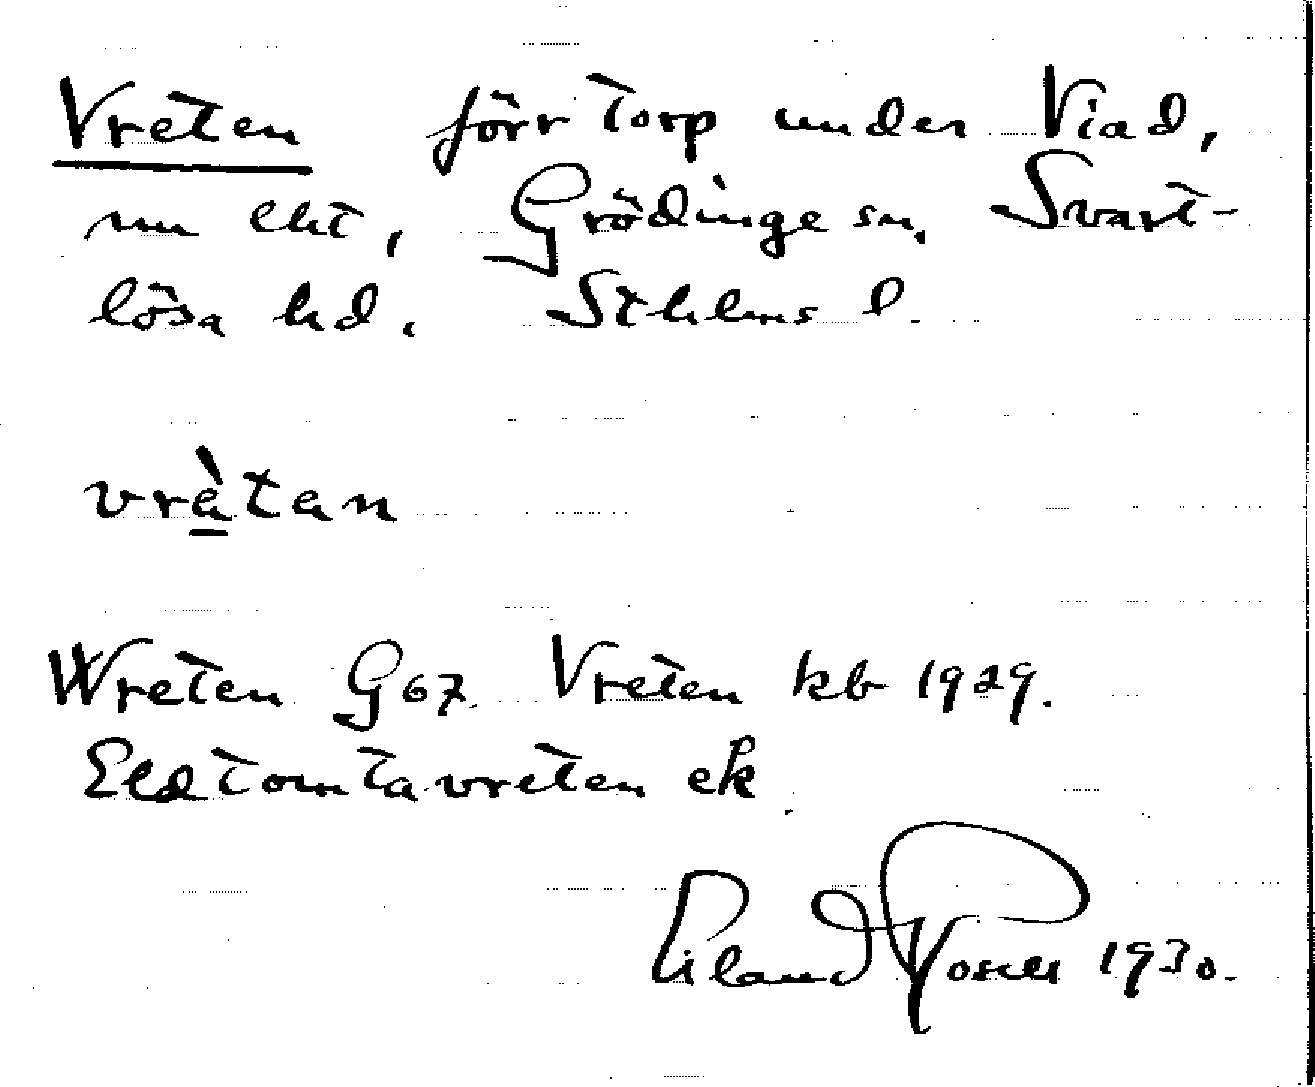 Vreten förr torp under Viad,
nu lht, Grödinge sn, Svart-
lösa hd. Sthlms l.
vrètan
Wreten G67. Vreten kb 1929.
Eldtomtavreten ek
Erland Rosell 1930.